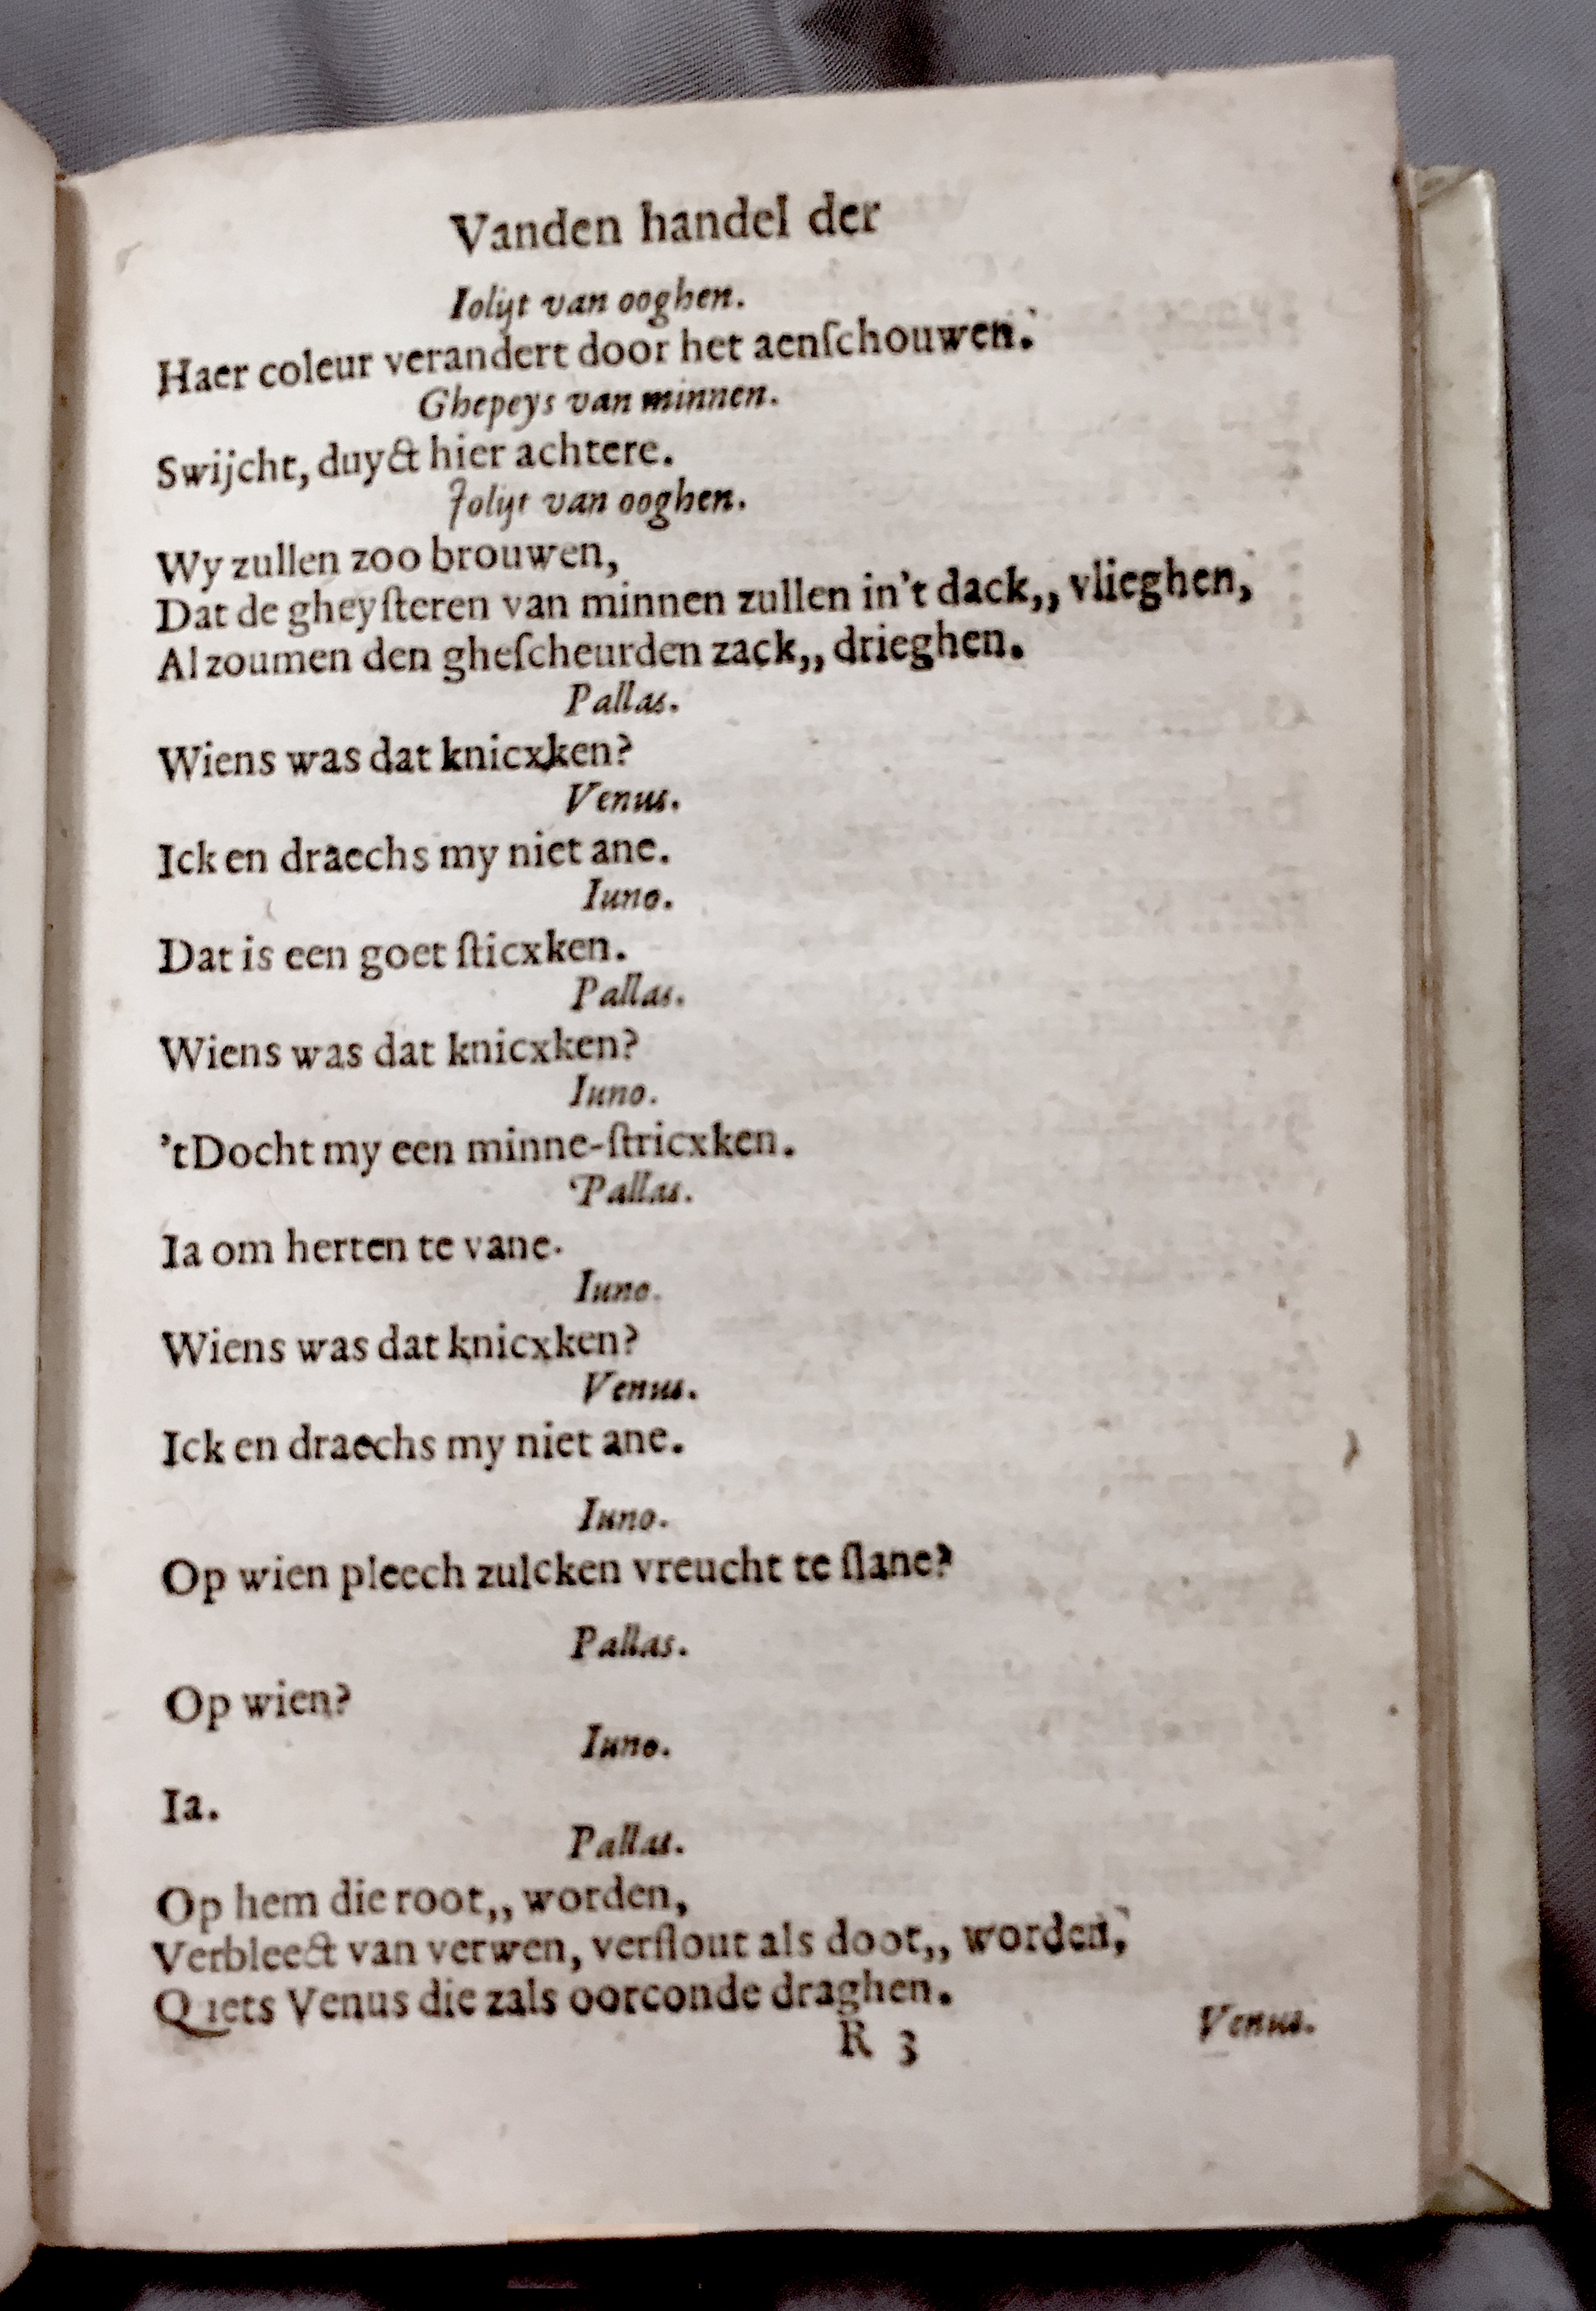 Vanden handel der
Iolijt van ooghen.
Haer coleur verandert door het aenſchouwen.
Ghepeys van minnen.
Swijcht, duyct hier achtere.
Jolijt van ooghen.
Wy zullen zoo brouwen,
Dat de gheyſteren van minnen zullen in't dack,, vlieghen,
Al zoumen den gheſcheurden zack,, drieghen.
Pallas.
Wiens was dat knicxken?
Venus.
Ick en draechs my niet ane.
Iuno.
Dat is een goet ſticxken.
Pallas.
Wiens was dat knicxken?
Iuno.
'tDocht my een minne-ſtricxken.
Pallas.
Ia om herten te vane.
Iuno.
Wiens was dat knicxken?
Venus.
Ick en draechs my niet ane.
Iuno.
Op wien pleech zulcken vreucht te ſlane?
Pallas.
Op wien?
Iuno.
Ia.
Pallas.
Op hem die root,, worden,
Verbleect van verwen, verflout als doot,, worden,
Quets Venus die zals oorconde draghen.
R 3
Venus.